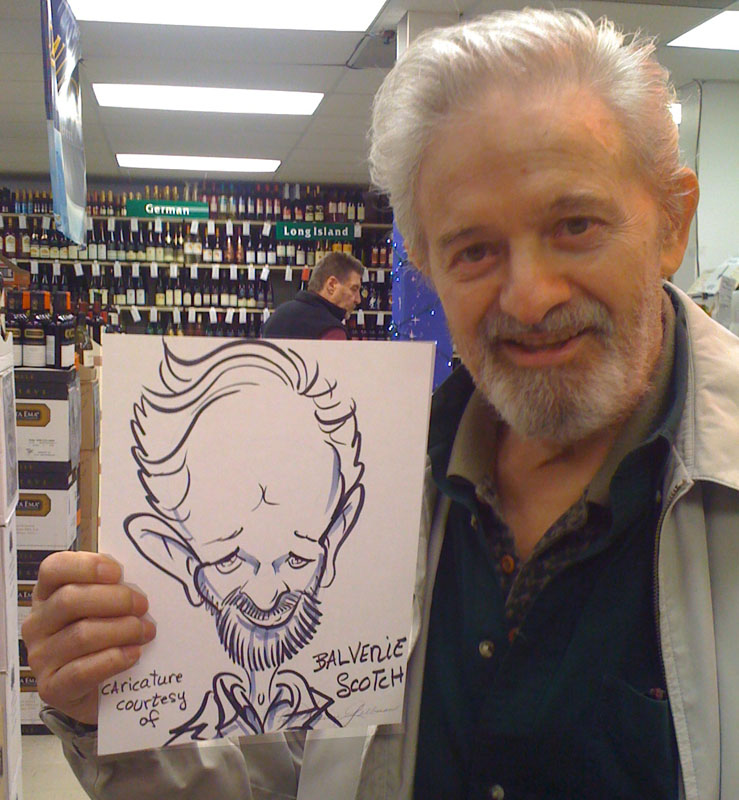 German
Long Island
CARICATURE
COURTESY
OF
BALVENIE
SCOTCH